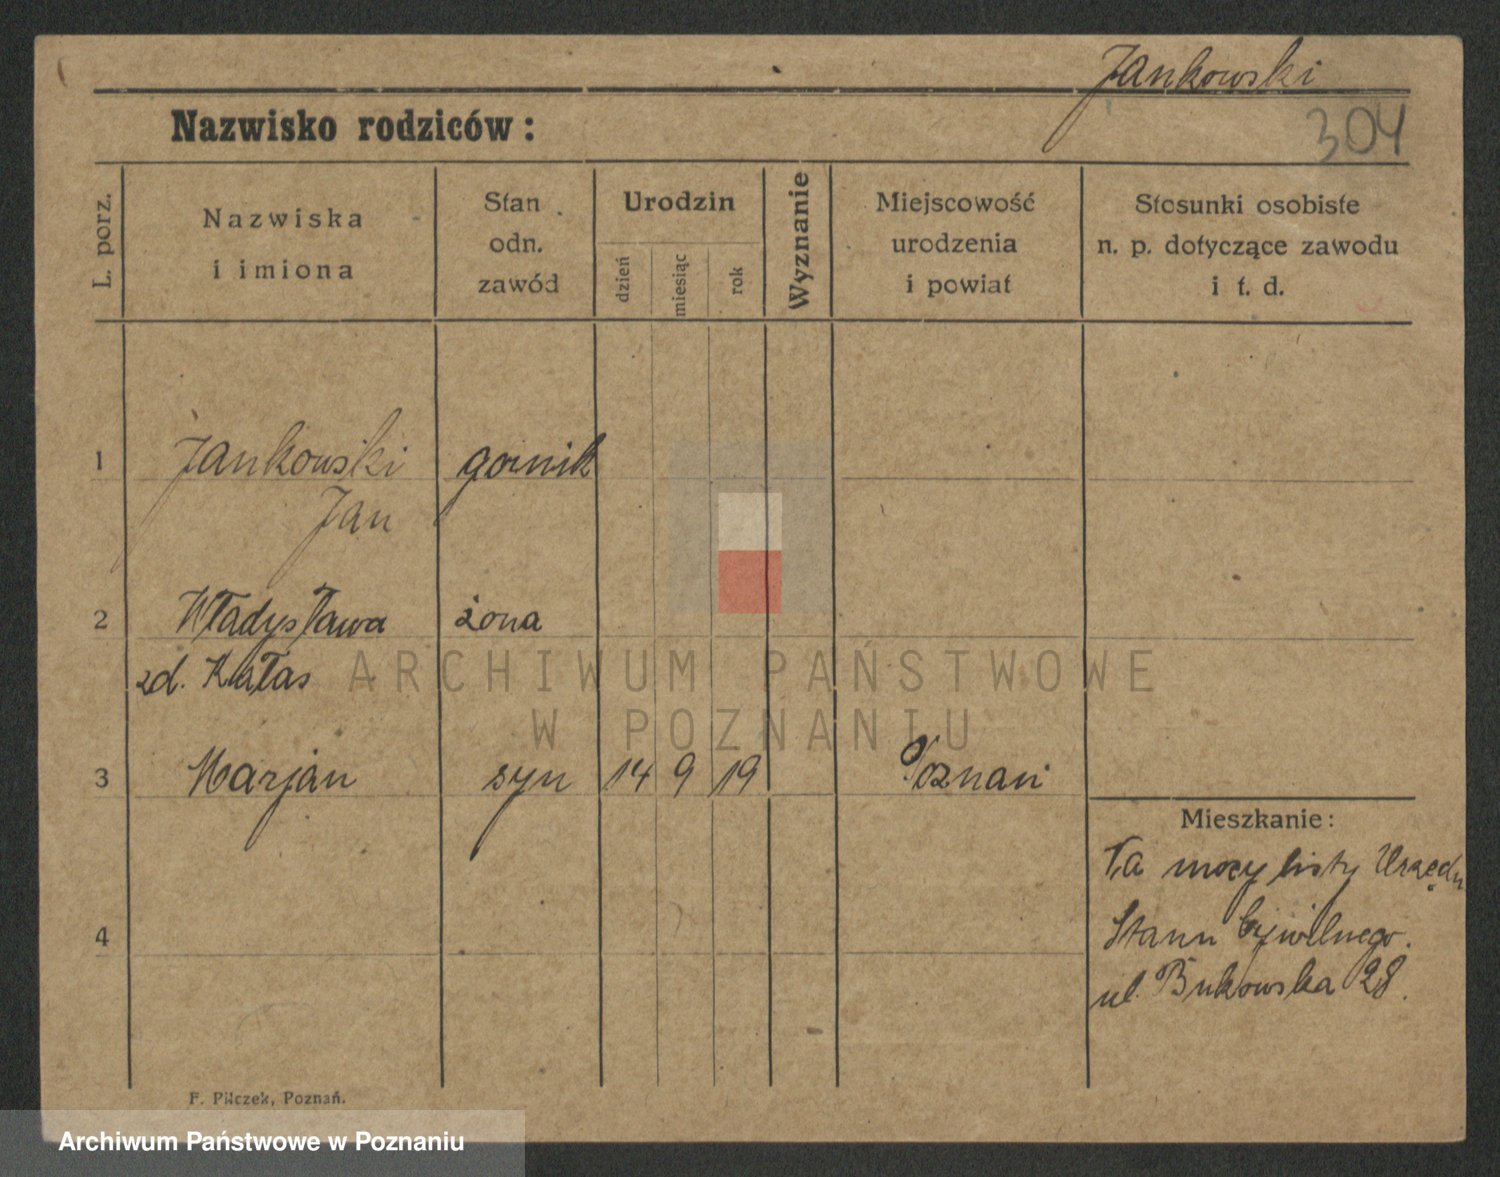 Jankowski
304
Nazwisko rodziców:
L. porz.
Nazwiska
i imiona
Stan
odn.
zawód
Urodzin
dzień
miesiąc
rok
Wyznanie
Miejscowość
urodzenia
i powiat
Stosunki osobiste
n. p. dotyczące zawodu
i t. d.
1 Jankowski gornik
Jan
2 Władysława żona
zd. Kałas
ARCHIWUM PAŃSTWOWE
W POZNANIU
3 Marjan syn 14 9 19 Poznań
Mieszkanie:
Na mocy listy Urzędu
4
Stanu Cywilnego.
ul. Bukowska 28.
F. Pilczek, Poznań.
Archiwum Państwowe w Poznaniu